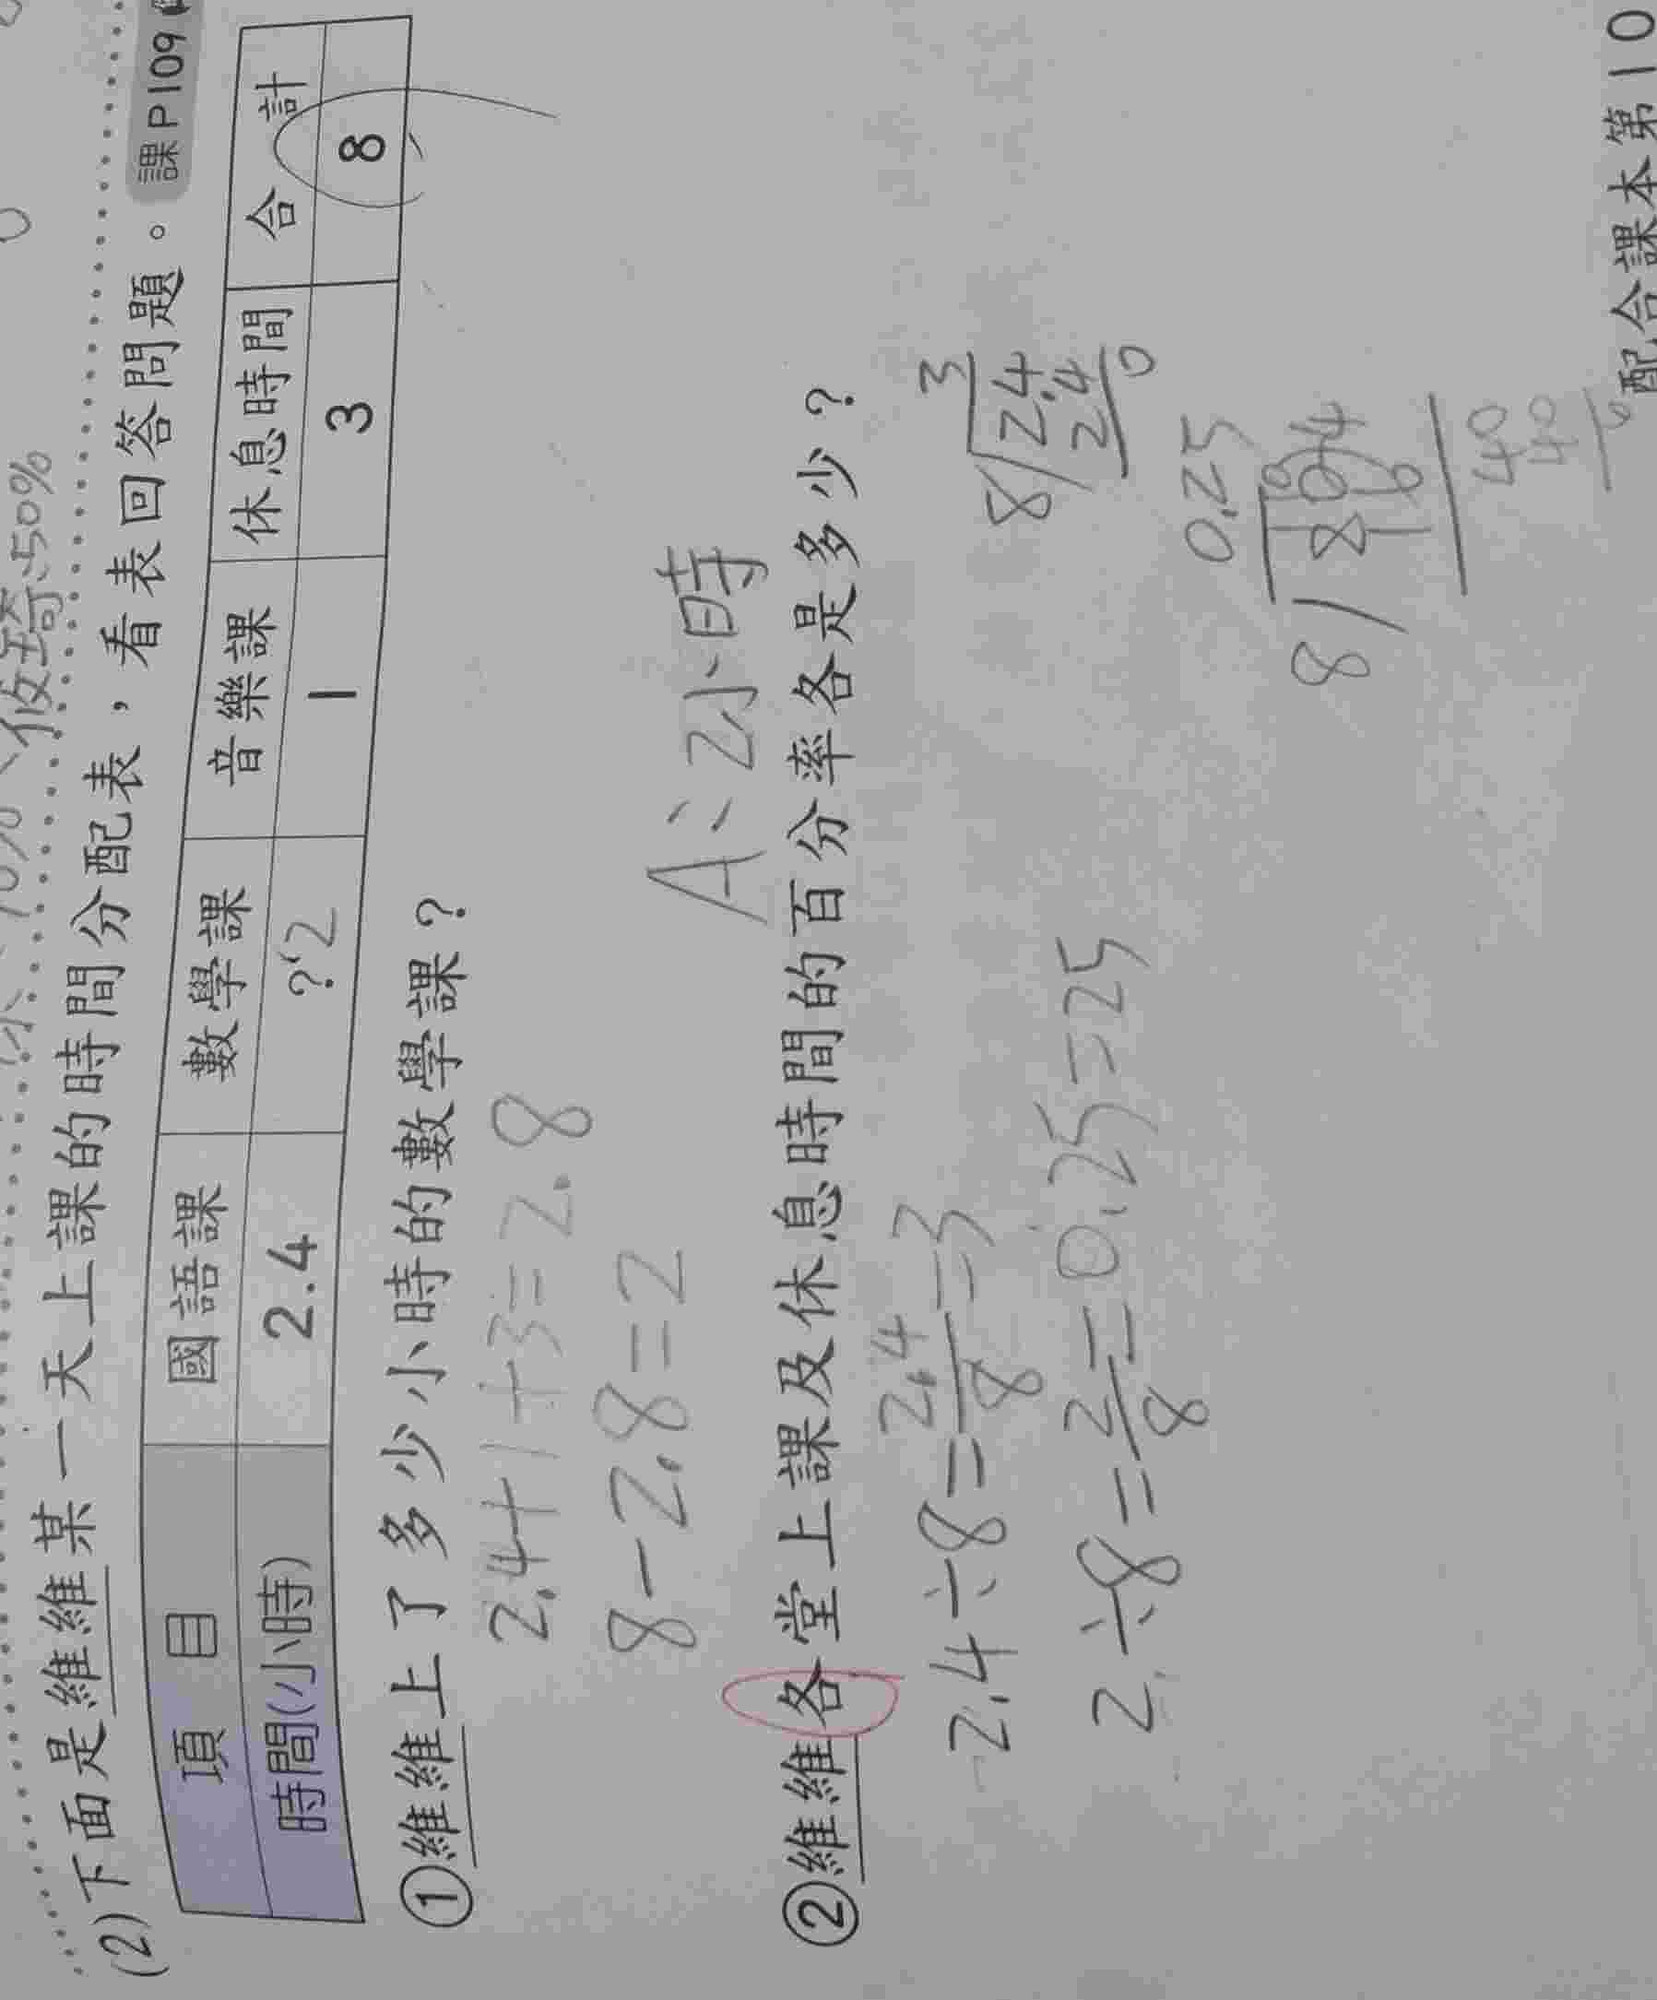 10%、攸琦:50%
(2)下面是維維某一天上課的時間分配表，看表回答問題。 課P109
項目 國語課 數學課 音樂課 休息時間 合計
時間(小時) 2.4 ? 2 1 3 8
①維維上了多少小時的數學課？
2.4+1+3=2.8
8-2.8=2
A:2小時
②維維各堂上課及休息時間的百分率各是多少？
2.4÷8=2.4/8=3
3
8)2.4
2.4
0
2÷8=2/8=0.25=25
0.25
8)
40
40
配合課本第10